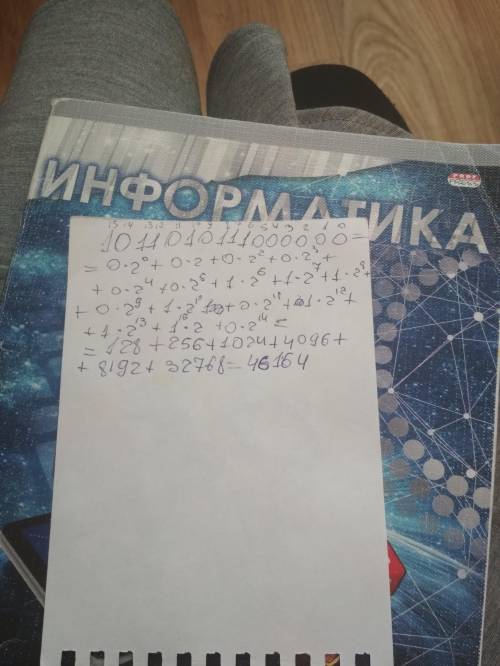 PROF
PRESS
ИНФОРМАТИКА
15 14 13 12 11 10 9 8 7 6 5 4 3 2 1 0
1011010111000000=
=0·2⁰+0·2+0·2²+0·2³+
+0·2⁴+0·2⁵+1·2⁶+1·2⁷+1·2⁸+
+0·2⁹+1·2¹⁰+0·2¹¹+1·2¹²+
+1·2¹³+1¹⁵·2+0·2¹⁴=
=128+256+1024+4096+
+8192+32768=46164